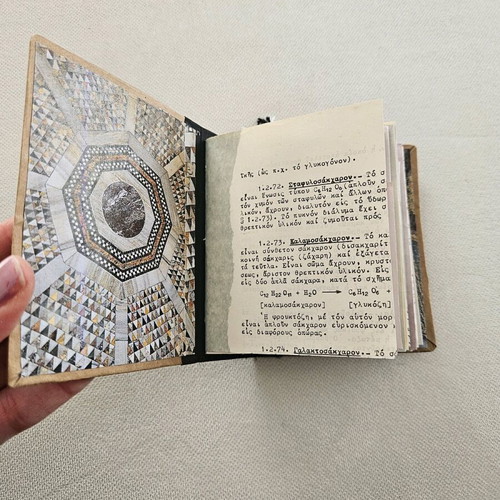 τικῆς (ὡς π.χ. τό γλυκογόνον).
1.2.72. Σταφυλοσάκχαρον.— Τό σ
εἶναι ἕνωσις τύπου C₆H₁₂ O₆ (ἁπλοῦν σ
τόν χυμόν τῶν σταφυλῶν καί ἄλλων ὀπ
λικόν, ἄχρουν, διαλυτόν εἰς τό ὕδωρ
§ 1-2.73). Τό πυκνόν διάλυμα ἔχει σ
θρεπτικόν ὑλικόν καί ζυμοῦται πρός
1.2.73. Καλαμοσάκχαρον.— Τό κα
εἶναι σύνθετον σάκχαρον (δισακχαρίτ
κοινή σάκχαρις (ζάχαρη) καί ἐξάγετα
τά τεῦτλα. Εἶναι σῶμα ἄχρουν, κρυστ
σεως, ἄριστον θρεπτικόν ὑλικόν. Εἰς
εἰς δύο ἁπλᾶ σάκχαρα, κατά τό σχῆμα
C₁₂ H₂₂ O₁₁ + H₂O → C₆H₁₂ O₆ +
[καλαμοσάκχαρον] [γλυκόζη]
Ἡ φρουκτόζη, μέ τόν αὐτόν μορ
εἶναι ἁπλοῦν σάκχαρον εὑρισκόμενον
εἰς διαφόρους ὀπώρας.
1.2.74. Γαλακτοσάκχαρον.— Τό σ